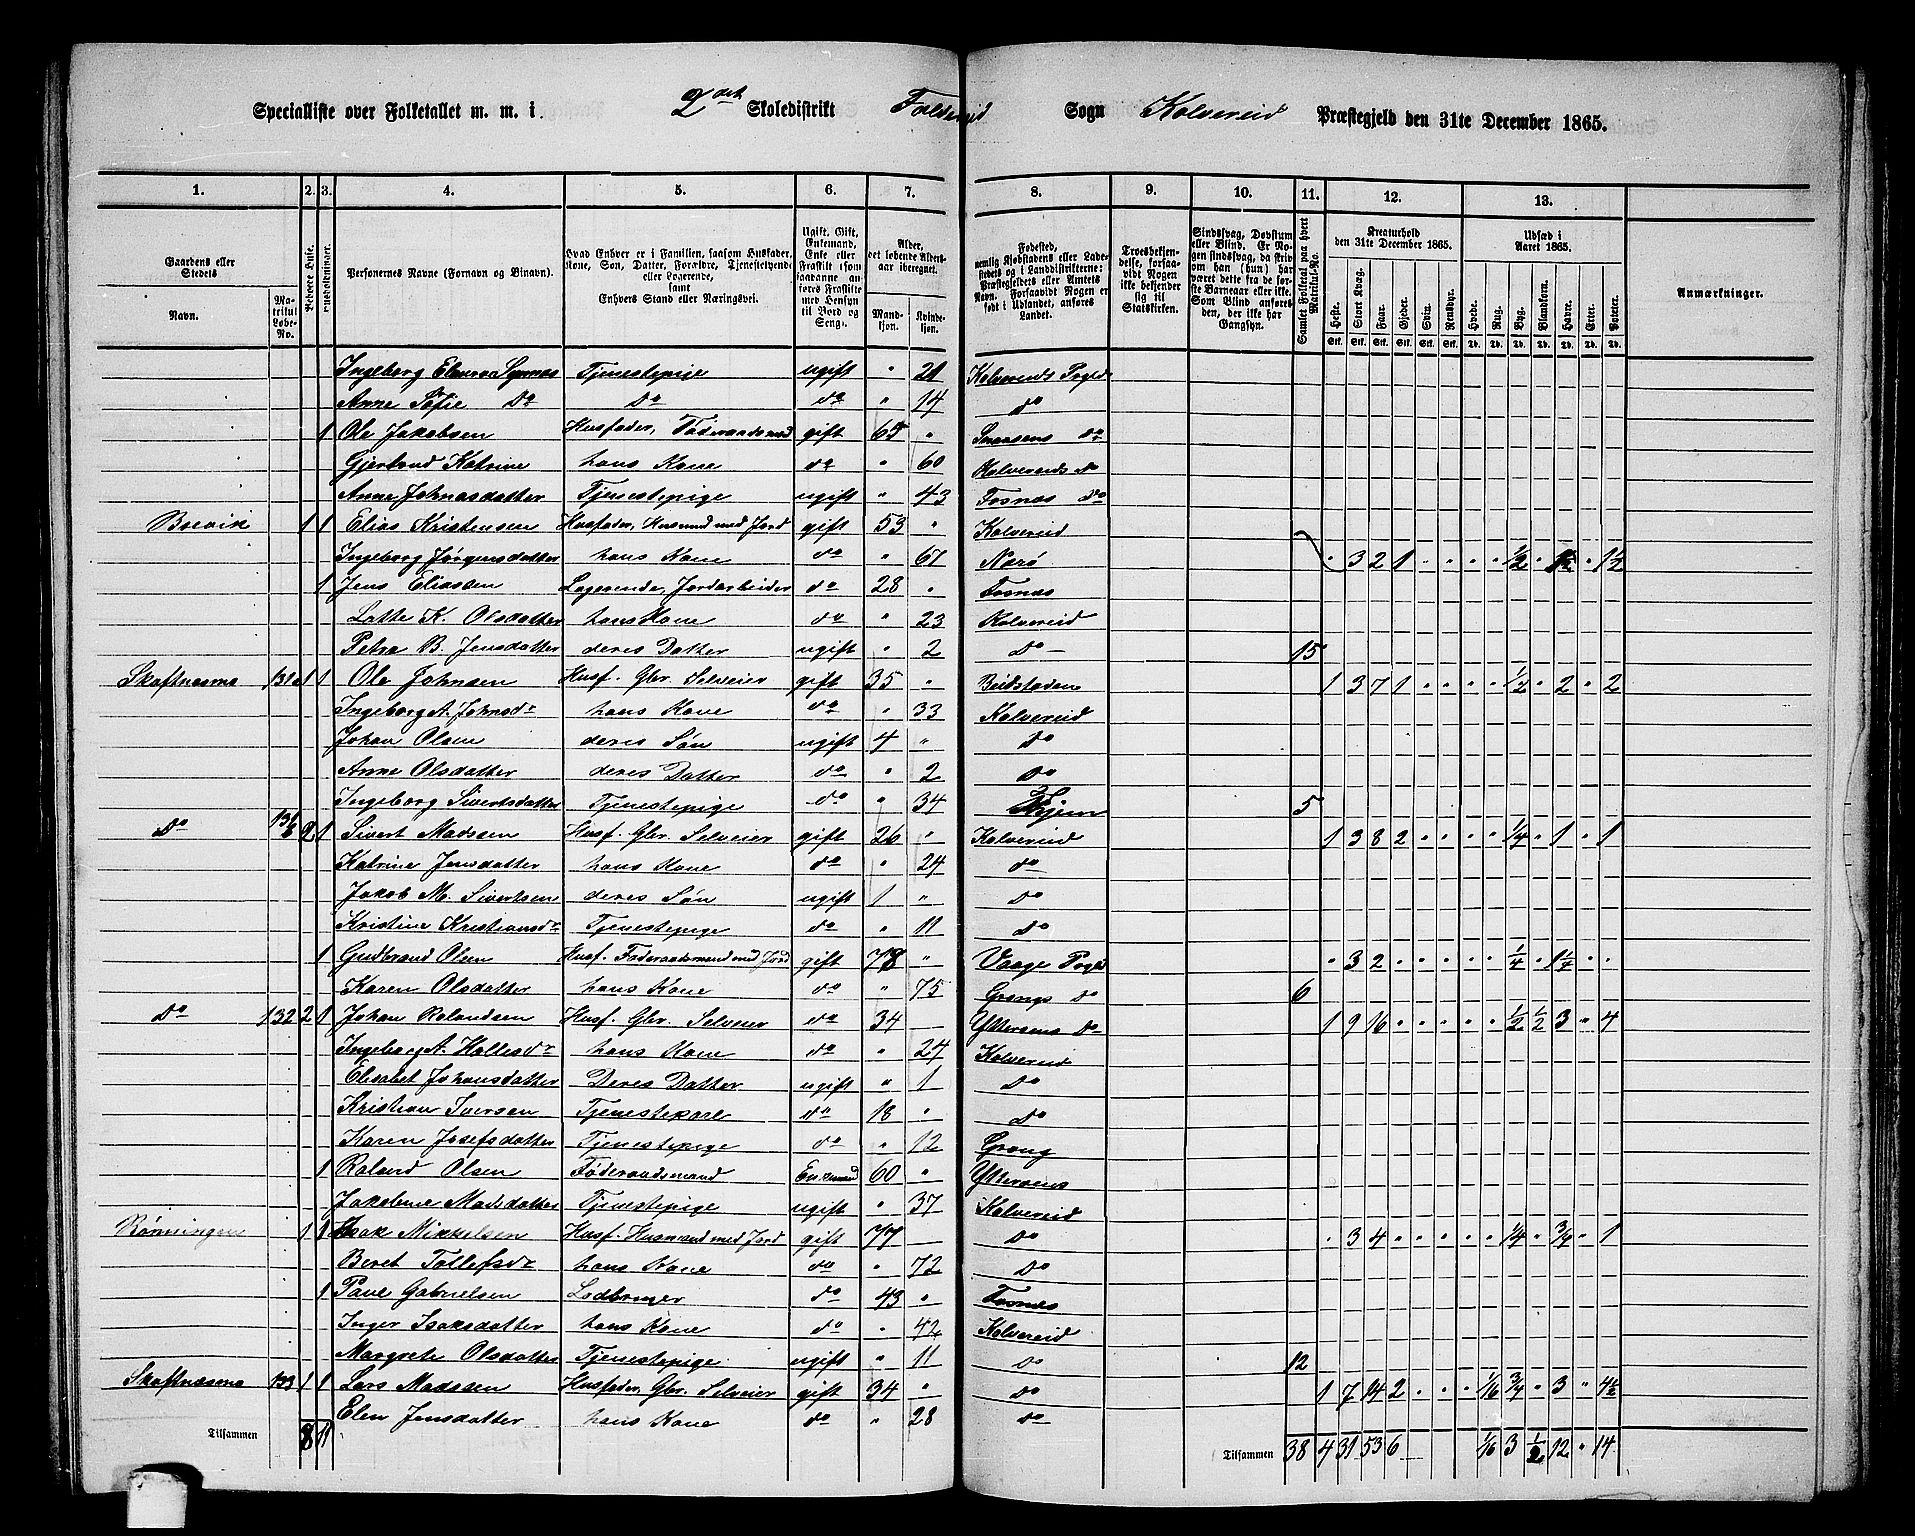 Specialliste over Folketallet m. m. i 2det Skoledistrikt Foldereid Sogn Kolvereid Præstegjeld den 31te December 1865.
1. 2. 3. 4. 5. 6. 7. 8. 9. 10. 11. 12. 13.
Gaardens eller Stedets Navn. Matrikul Løbe-No. Beboede Huse. Husholdninger. Personernes Navne (Fornavn og Binavn). Hvad Enhver er i Familien, saasom Husfader, Kone, Søn, Datter, Forældre, Tjenestetyende eller Logerende, samt Enhvers Stand eller Næringsvei. Ugift, Gift, Enkemand, Enke eller Fraskilt Alder, det løbende Aldersaar iberegnet. Mandkjøn. Kvindekjøn. Fødested, Troesbekjendelse, forsaavidt Nogen ikke bekjender sig til Statskirken. Samlet Folketal paa hvert Matrikul-No. Kreaturhold den 31te December 1865. Udsæd i Aaret 1865. Anmærkninger.
Heste. Stort Kvæg. Faar. Gjeder. Svin. Rensdyr. Hvede. Rug. Byg. Blandkorn. Havre. Erter. Poteter.
Ingeborg Tjenestepige ugift " 21 Kolvereids Pgjd
Anne Sofie Do Do do " 14 do
1 Ole Jakobsen Husfader, Føderaadsmd gift 65 " Snaasens do
Gjertrud Katrine hans Kone do " 60 Kolvereids do
Anne Johnasdatter Tjenestepige ugift " 43 Fosnæs do
Brevik 1 1 Elias Kristensen Husfader, Husmand med Jord gift 53 " Kolvereid
Ingeborg Jørgensdatter hans Kone do " 67 Nærø " 3 2 1 " " " " 1/2 " " 1 1/2
1 Jens Eliassen Logerende, Jordarbeider do 28 " Fosnæs
Lotte K. Olsdatter hans Kone do " 23 Kolvereid
Petra B. Jensdatter deres Datter ugift " 2 Do 15
Skaftnæsme 131a 1 1 Ole Johnsen Husf. Gbr. Selveier gift 35 " Beidstaden 1 3 7 1 " " " " 1/2 " 2 " 2
Ingeborg A. Johnsdr hans Kone do " 33 Kolvereid
Johan Olsen deres Søn ugift 4 " Do
Anne Olsdatter deres Datter do " 2 Do
Ingeborg Sivertsdatter Tjenestepige do " 34 5
Do 131b 2 1 Sivert Madssen Husf. Gbr. Selveier gift 26 " Kolvereid 1 3 8 2 " " " " 1/4 " 1 " 1
Katrine Jensdatter hans Kone do " 24 do
Jakob M. Sivertsen deres Søn ugift 1 " do
Kristine Kristiansdr Tjenestepige do " 11 do
1 Gudbrand Olsen Husf. Føderaadsmand med Jord gift 78 " Vaage Pgjd " 3 2 " " " " " 1/4 " 1 1/4 " "
Karen Olsdatter hans Kone do " 75 Grongs do 6
Do 132 2 1 Johan Rolandsen Husf. Gbr. Selveier do 34 Ytterøens do 1 9 16 " " " " " 1/2 1/2 3 " 4
Ingeborg A. Hallesdr hans Kone do " 24 Kolvereid
Elisabet Johansdatter Deres Datter ugift " 1 Do
Kristian Iversen Tjenestekarl do 18 " do
Karen Josefsdatter Tjenestepige do " 12 Grong
1 Roland Olsen Føderaadsmand Enkemand 60 " Ytterøens
Jakobine Madsdatter Tjenestepige ugift " 37 Kolvereid
Rønningen 1 1 Isak Mikkelsen Husf. Husmand med Jord gift 77 Do " 3 4 " " " " " 1/4 " 3/4 " 1
Beret Tollefsdr hans Kone do " 72 Do
1 Paul Gabrielsen Lodbruger do 43 " Fosnes
Inger Isaksdatter hans Kone do " 42 Kolvereid
Margrete Olsdatter Tjenestepige ugift " 11 Do 12
Skaftnæsme 133 1 1 Lars Madssen Husfader, Gbr. Selveier gift 34 " Do 1 7 14 2 " " " 1/16 3/4 " 3 " 4 1/2
Elen Jensdatter hans Kone do " 28 Do
Tilsammen 8 11 Tilsammen 38 4 31 53 6 1/16 3 1/2 12 " 14